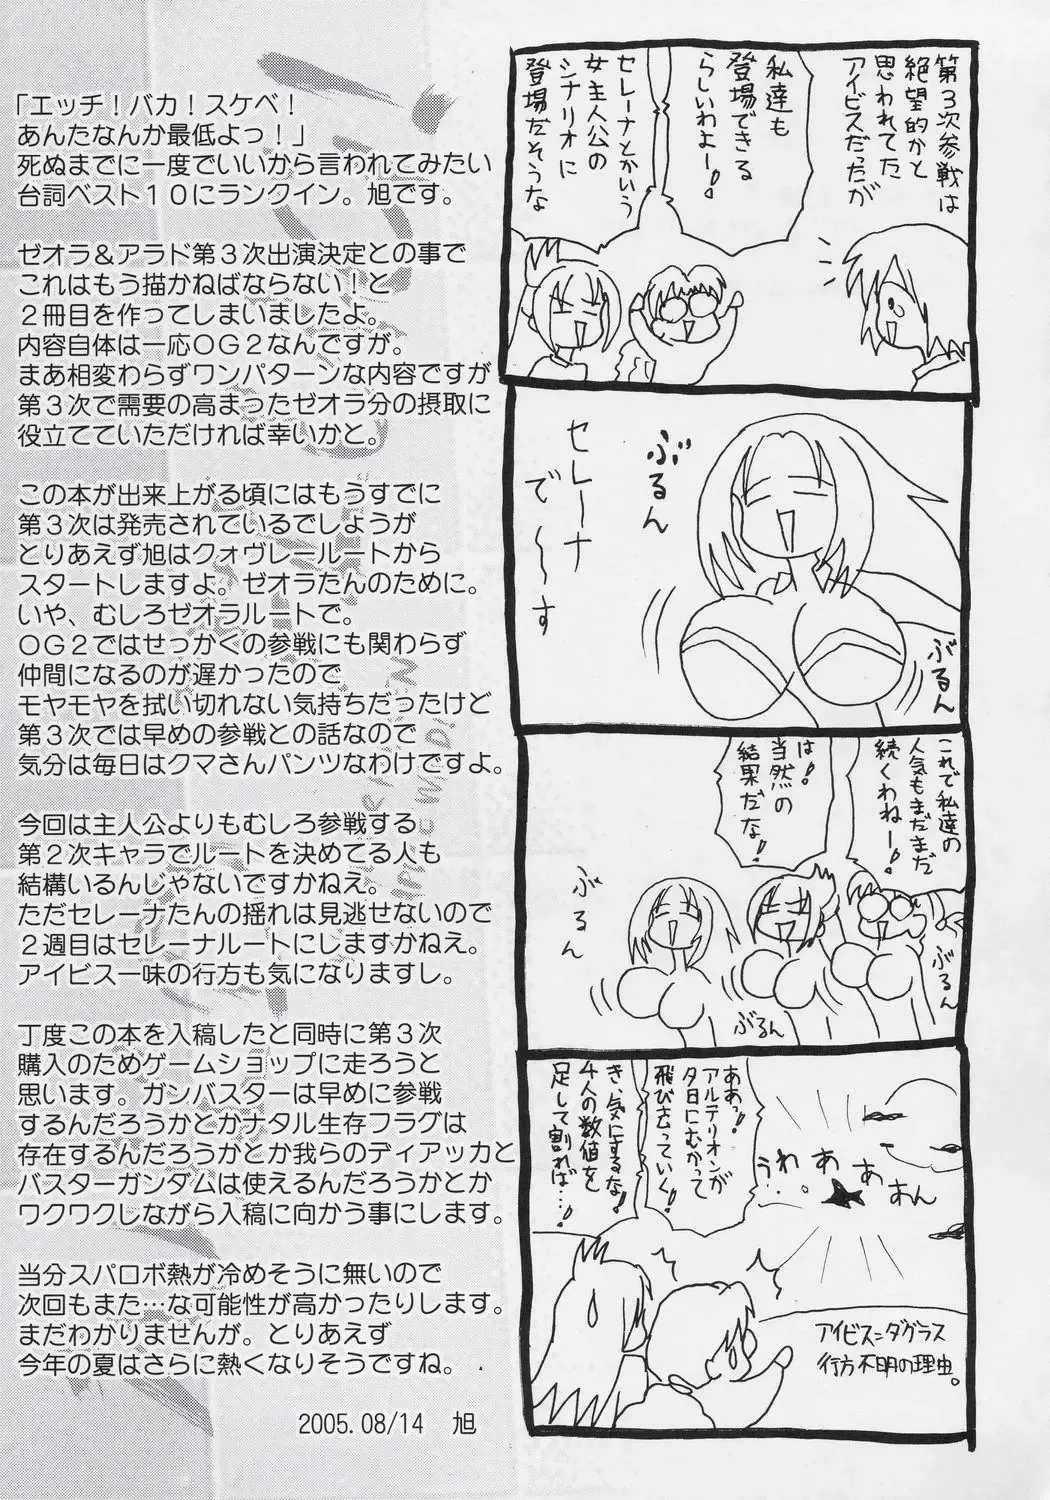 「エッチ！バカ！スケベ！
あんたなんか最低よっ！」
死ぬまでに一度でいいから言われてみたい
台詞ベスト１０にランクイン。旭です。
ゼオラ＆アラド第３次出演決定との事で
これはもう描かねばならない！と
２冊目を作ってしまいましたよ。
内容自体は一応ＯＧ２なんですが。
まあ相変わらずワンパターンな内容ですが
第３次で需要の高まったゼオラ分の摂取に
役立てていただければ幸いかと。
この本が出来上がる頃にはもうすでに
第３次は発売されているでしょうが
とりあえず旭はクォヴレールートから
スタートしますよ。ゼオラたんのために。
いや、むしろゼオラルートで。
ＯＧ２ではせっかくの参戦にも関わらず
仲間になるのが遅かったので、
モヤモヤを拭い切れない気持ちだったけど
第３次では早めの参戦との話なので
気分は毎日はクマさんパンツなわけですよ。
今回は主人公よりもむしろ参戦する
第２次キャラでルートを決めてる人も
結構いるんじゃないですかねえ。
ただセレーナたんの揺れは見逃せないので
２週目はセレーナルートにしますかねえ。
アイビス一味の行方も気になりますし。
丁度この本を入稿したと同時に第３次
購入のためゲームショップに走ろうと
思います。ガンバスターは早めに参戦
するんだろうかとかナタル生存フラグは
存在するんだろうかとか我らのディアッカと
バスターガンダムは使えるんだろうかとか
ワクワクしながら入稿に向かう事にします。
当分スパロボ熱が冷めそうに無いので
次回もまた…な可能性が高かったりします。
まだわかりませんが。とりあえず
今年の夏はさらに熱くなりそうですね。
2005.08/14　旭
第３次参戦は
絶望的かと
思われてた
アイビスだったが
私達も
登場できる
らしいわよー！
セレーナとかいう
女主人公の
シナリオに
登場だそうな
ぶるん
セレーナ
で〜〜す
ぶるん
これで私達の
人気もまだまだ
続くわねー！
は！
当然の
結果だな！
ぶるん
ぶるん
ぶるん
ああっ！
アルテリオンが
夕日にむかって
飛び去っていく！
き、気にするな！
４人の数値を
足して割れば…！
うわぁあぁん
アイビス＝ダグラス
行方不明の理由。